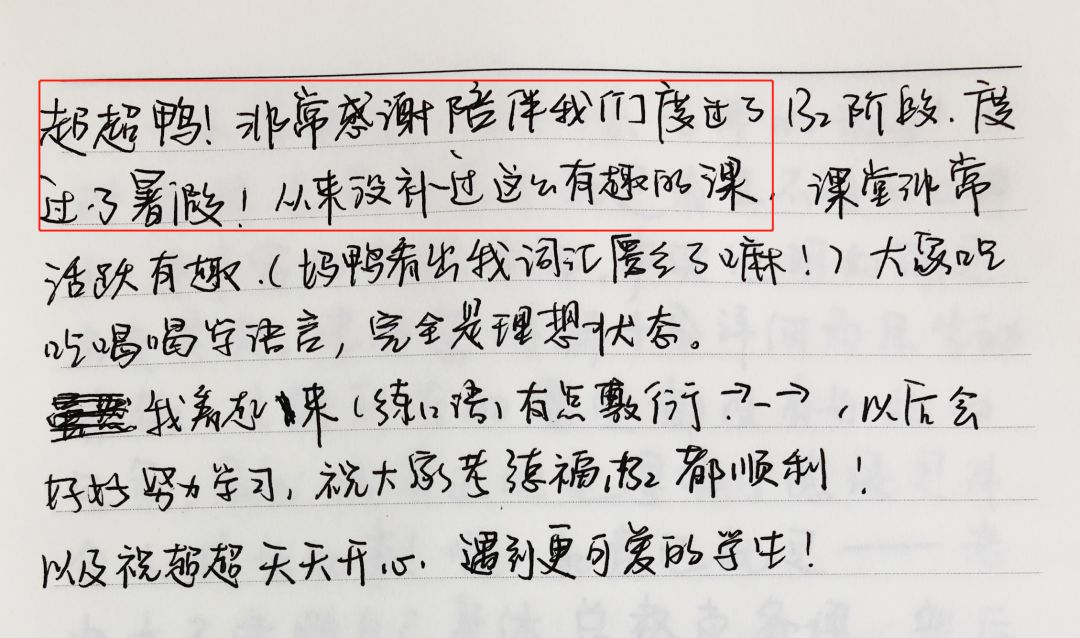 超超鸭！非常感谢陪伴我们度过了B2阶段.度
过了暑假！从来没补过这么有趣的课，课堂非常
活跃有趣.（妈鸭看出我词汇匮乏了嘛！）大家吃
吃喝喝学语言，完全是理想状态。
我看起来（练口语）有点敷衍→_→，以后会
好好努力学习，祝大家考德福,B2都顺利！
以及祝超超天天开心，遇到更可爱的学生！